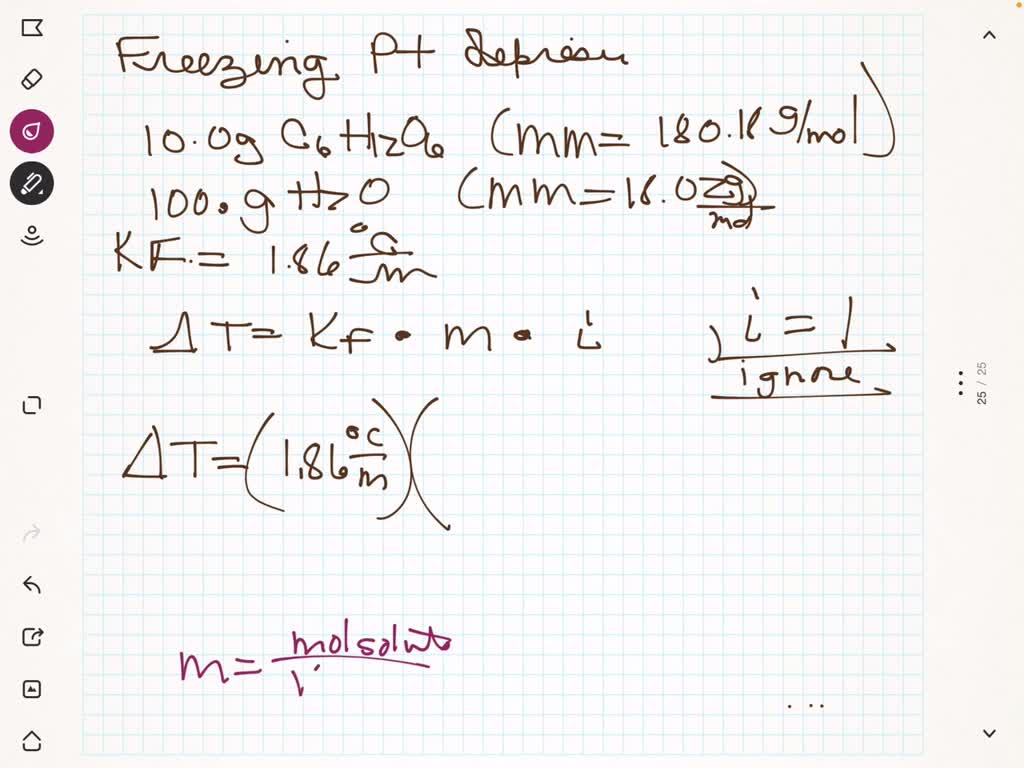 Freezing Pt
10.0g C6 H12O6 (mm = 180.18 g/mol)
100.g H2O (mm = 18.02g/mol)
KF. = 1.86 °C/m
ΔT = KF • m • i , i = 1
ignore
ΔT = (1.86 °C/m)(
25 / 25
m = mol solute